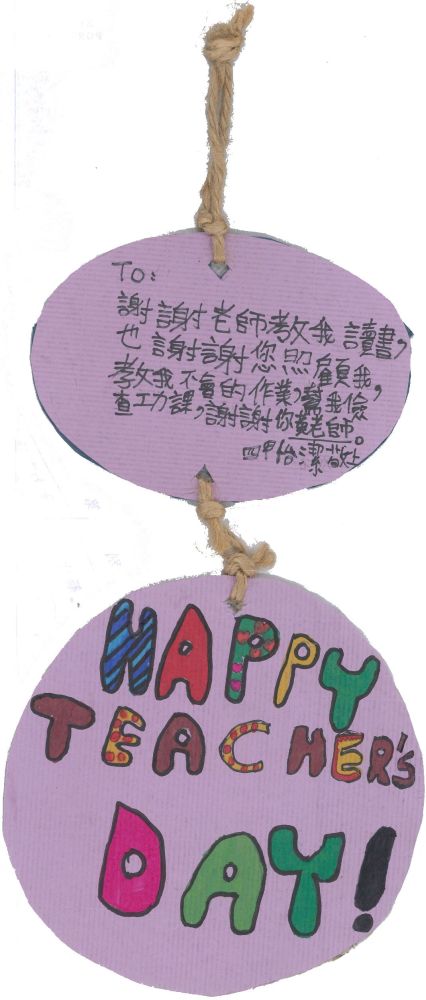 TO:
謝謝老師教我讀書,
也謝謝您照顧我,
教我不會的作業,幫我檢
查功課,謝謝你黃老師。
四甲怡潔敬上
HAPPY
TEACHER'S
DAY!